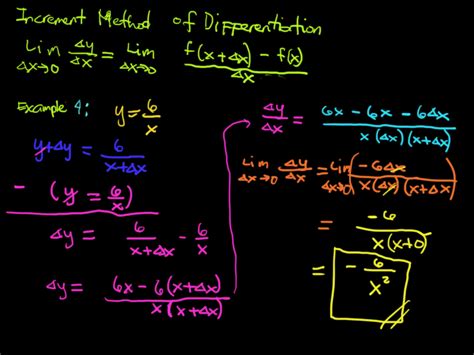 Increment Method of Differentiation
Lim Δx→0 Δy/Δx = Lim Δx→0 f(x+Δx) - f(x) / Δx
Example 4: y = 6/x
y+Δy = 6/x+Δx
- (y = 6/x)
Δy = 6/x+Δx - 6/x
Δy = 6x - 6(x+Δx) / x(x+Δx)
Δy/Δx = 6x - 6x - 6Δx / x(Δx)(x+Δx)
Lim Δx→0 Δy/Δx = Lim Δx→0 (-6Δx / x(Δx)(x+Δx))
= -6 / x(x+0)
= - 6/x²